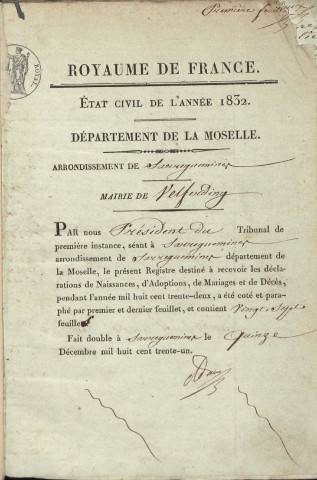 Première feuillet
ROYAL
ROYAUME DE FRANCE.
ÉTAT CIVIL DE L'ANNÉE 1832.
DÉPARTEMENT DE LA MOSELLE.
ARRONDISSEMENT DE Sarreguemines
MAIRIE DE Velferding
PAR nous Président du Tribunal de
première instance, séant à Sarreguemines
arrondissement de Sarreguemines département de
la Moselle, le présent Registre destiné à recevoir les décla-
rations de Naissances, d'Adoptions, de Mariages et de Décès,
pendant l'année mil huit cent trente-deux, a été coté et para-
phé par premier et dernier feuillet, et contient Vingt-Sept
feuillets
Fait double à Sarreguemines le Quinze
Décembre mil huit cent trente-un.